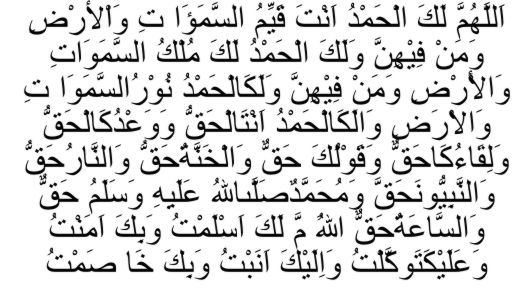 اَللَّهُمَّ لَكَ الْحَمْدُ اَنْتَ قَيِّمُ السَّمَوَا تِ وَالْأَرْضِ
وَمَنْ فِيْهِنَّ وَلَكَ الْحَمْدُ لَكَ مُلْكُ السَّمَوَاتِ
وَالْأَرْضِ وَمَنْ فِيْهِنَّ وَلَكَالْحَمْدُ نُوْرُالسَّمَوَا تِ
وَالْارَضِ وَالَكَالْحَمْدُ اَنْتَالْحَقُّ وَوَعْدُكَالْحَقُّ
وَلِقَاءُكَاحَقٌّ وَقَوْلُكَ حَقٌّ وَالْخَنَّةُحَقٌّ وَالنَّارُحَقٌّ
وَالنَّبِيُّونَحَقَّ وَمُحَمَّدٌصَلَّىاللهُ عَلَيهِ وَسَلَمُ حَقٌّ
وَالسَّاعَةُحَقٌّ اللهُ مَّ لَكَ اَسْلَمْتُ وَبِكَ اَمَنْتُ
وَعَلَيْكَتَوَكَّلْتُ وَاِلَيْكَ اَنَبْتُ وَبِكَ خَا صَمْتُ